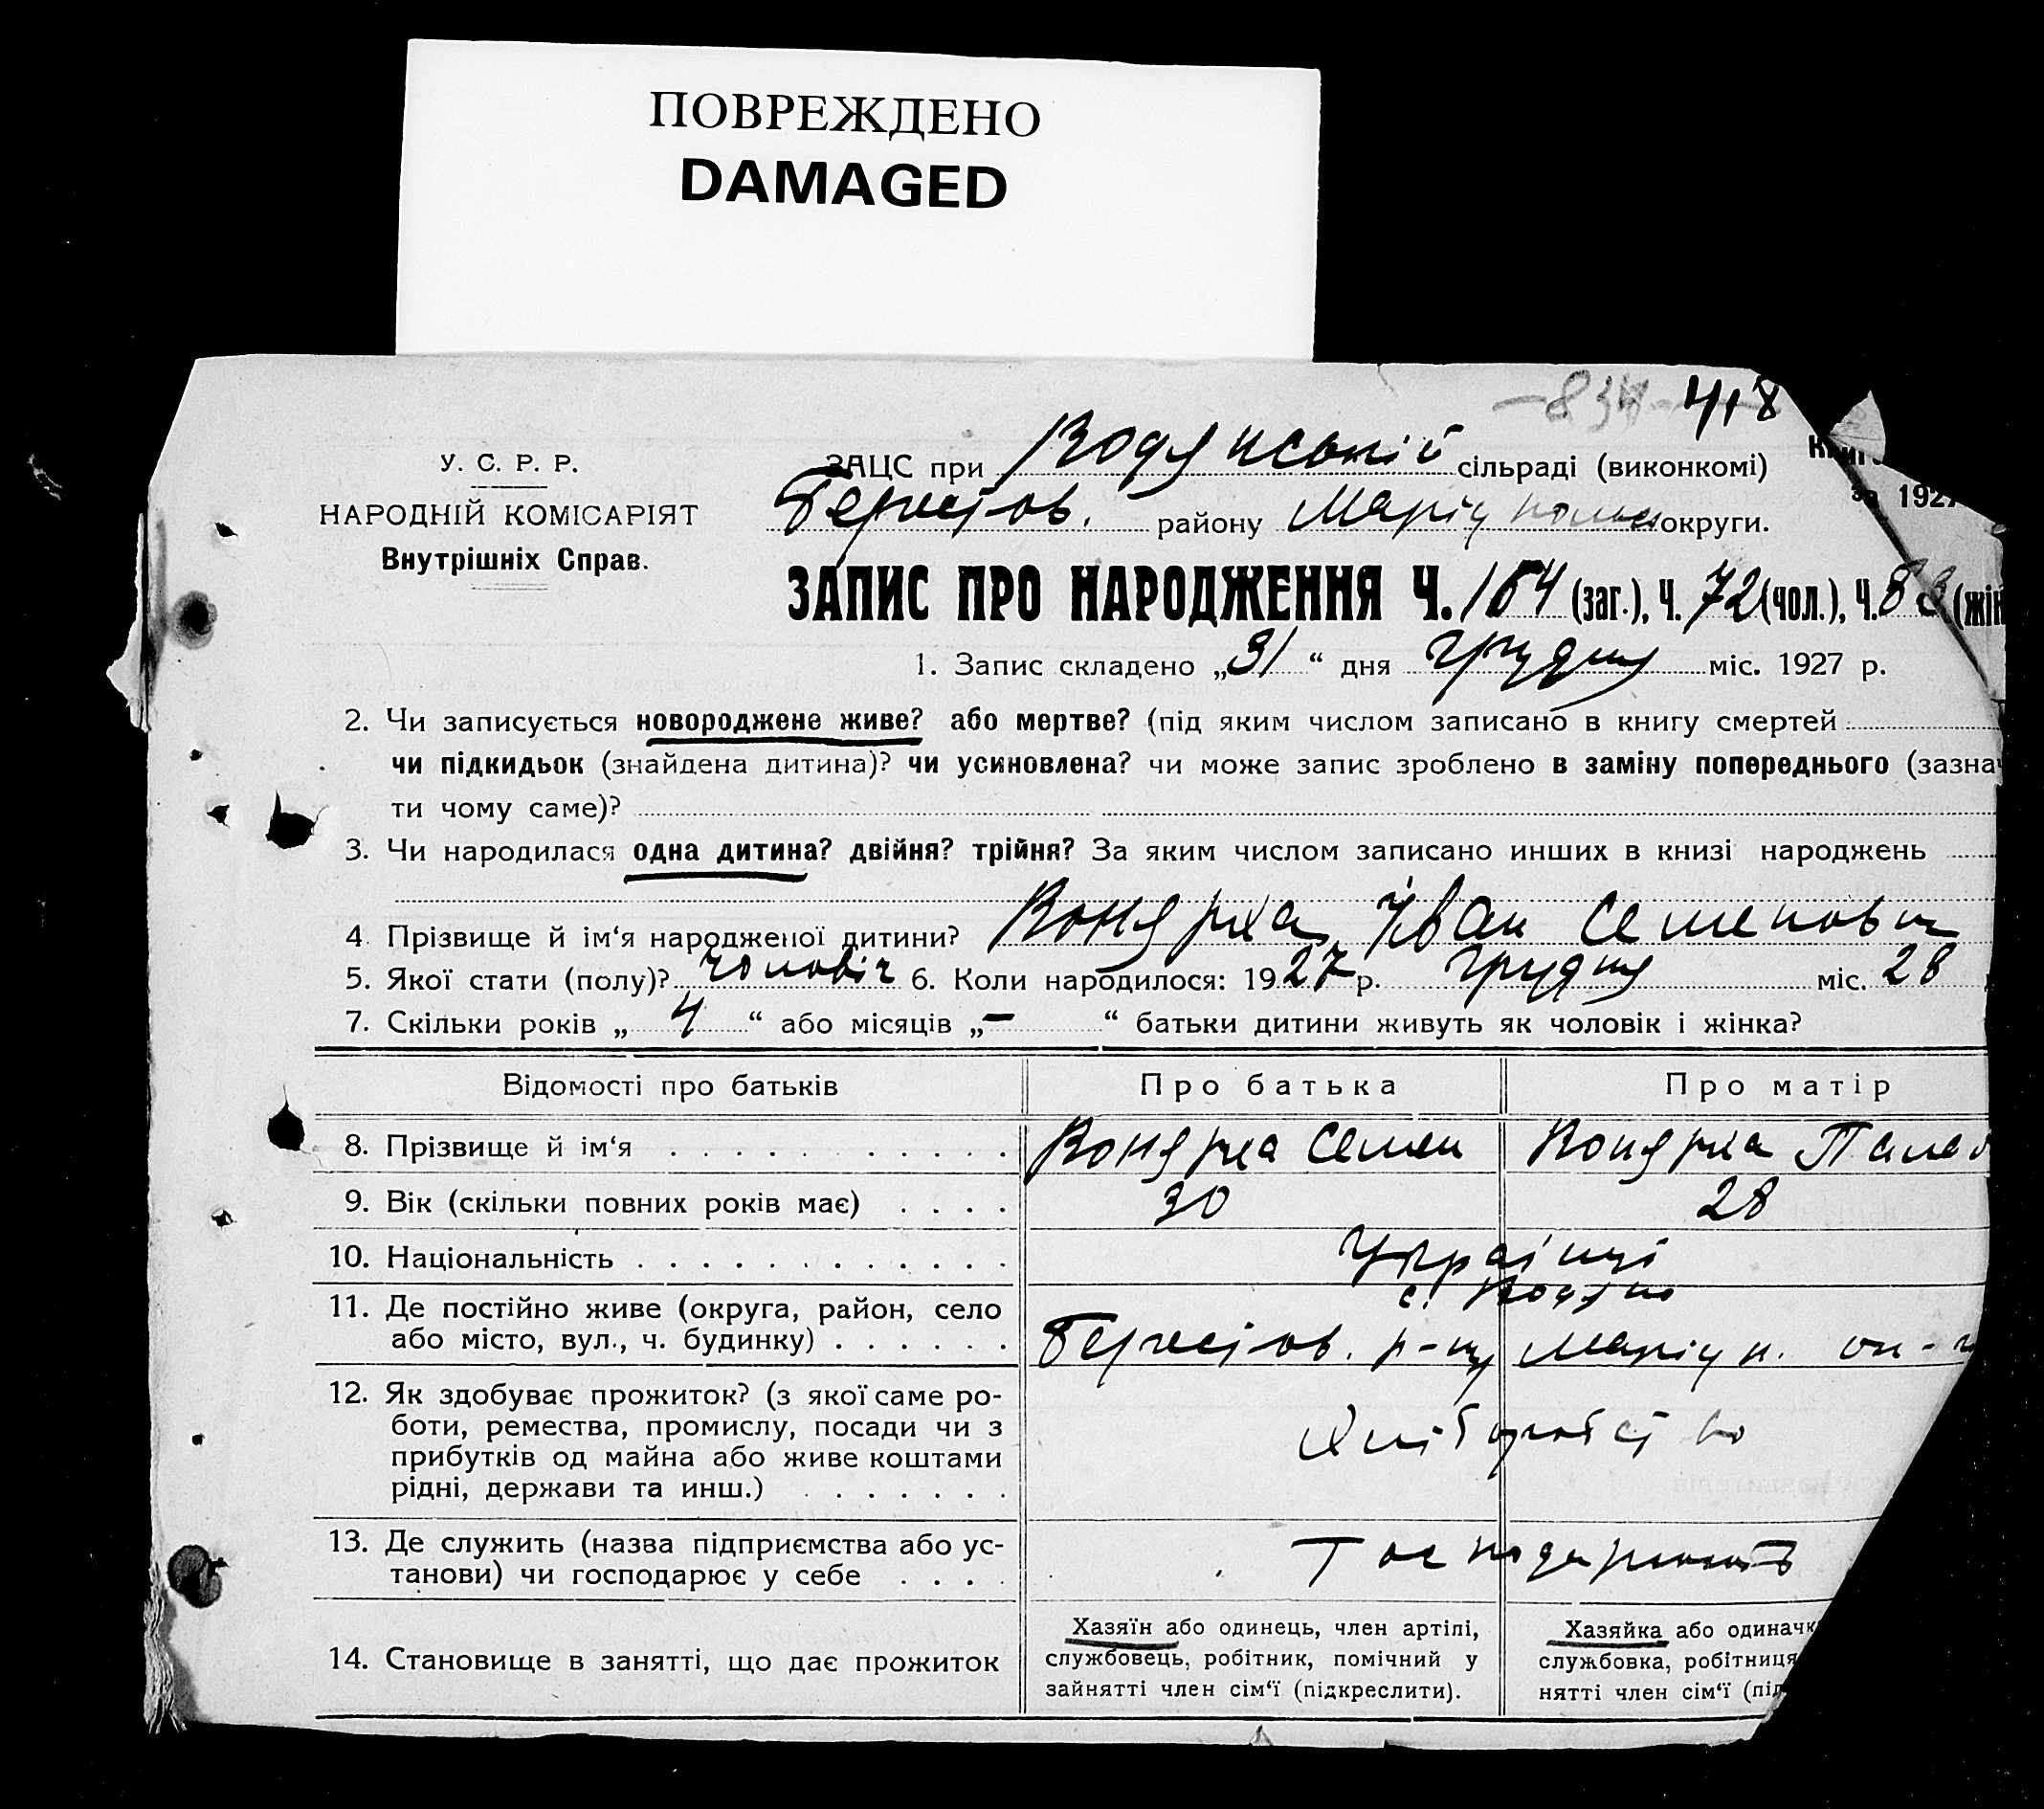 ПОВРЕЖДЕНО
DAMAGED
418
У. С. Р. Р.
НАРОДНІЙ КОМІСАРІЯТ
Внутрішніх Справ.
ЗАЦС при Водянській сільраді (виконкомі)
за 1927
Берестов. району Маріупольск округи.
ЗАПИС ПРО НАРОДЖЕННЯ Ч. 154 (заг.), Ч. 72 (чол.), Ч. 83 (жін
1. Запис складено „31“ дня грудня міс. 1927 р.
2. Чи записується новороджене живе? або мертве? (під яким числом записано в книгу смертей
чи підкидьок (знайдена дитина)? чи усиновлена? чи може запис зроблено в заміну попереднього (зазна
ти чому саме)?
3. Чи народилася одна дитина? двійня? трійня? За яким числом записано инших в книзі народжень
4. Прізвище й ім‘я народженої дитини? Кондрха Іван Семенович
5. Якої стати (полу)? чоловіч 6. Коли народилося: 1927 р. грудня міс. 28
7. Скільки років „ 4 “ або місяців „ — “ батьки дитини живуть як чоловік і жінка?
Відомості про батьків Про батька Про матір
8. Прізвище й ім‘я Кондрха Семен Кондрха
9. Вік (скільки повних років має) 30 28
10. Національність Українці
11. Де постійно живе (округа, район, село с. Водяно
або місто, вул., ч. будинку) Берестов. р-ну Маріуп. ок-
12. Як здобуває прожиток? (з якої саме ро-
боти, ремества, промислу, посади чи з Хліборобство
прибутків од майна або живе коштами
рідні, держави та инш.)
13. Де служить (назва підприємства або ус- Господарюють
танови) чи господарює у себе
14. Становище в занятті, що дає прожиток
Хазяїн або одинець, член артілі,
службовець, робітник, помічний у
зайнятті член сім‘ї (підкреслити).
Хазяйка або одинач
службовка, робітниця
нятті член сім‘ї (під